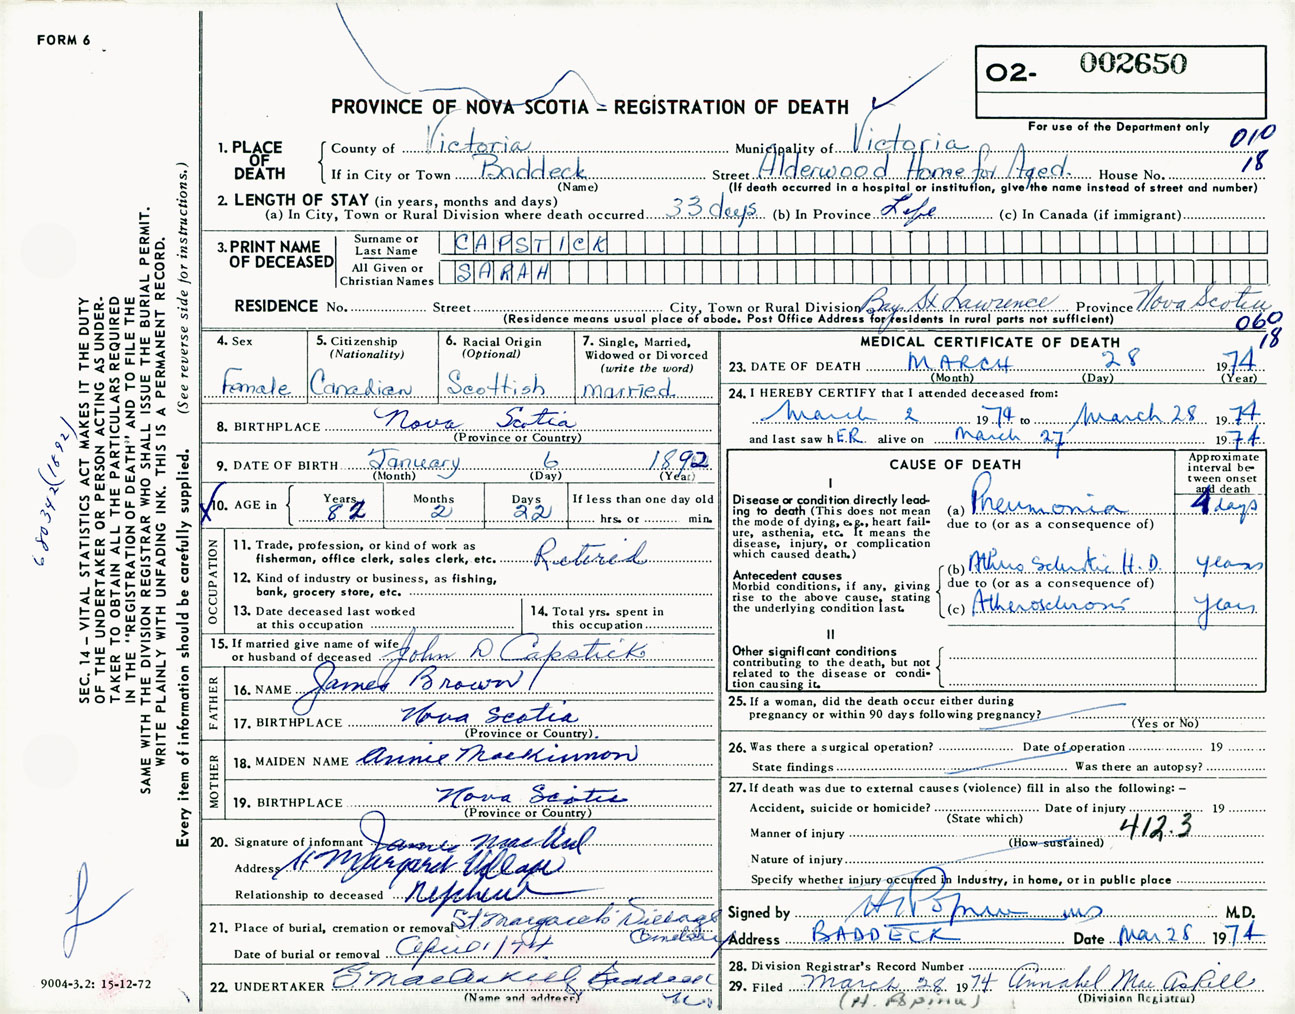 FORM 6
02- 002650
PROVINCE OF NOVA SCOTIA - REGISTRATION OF DEATH
For use of the Department only
010
18
1. PLACE OF DEATH
County of Victoria Municipality of Victoria
If in City or Town Baddeck Street Alderwood Home for Aged. House No.
(Name) (If death occurred in a hospital or institution, give the name instead of street and number)
2. LENGTH OF STAY (in years, months and days)
(a) In City, Town or Rural Division where death occurred 33 days (b) In Province Life (c) In Canada (if immigrant)
3. PRINT NAME OF DECEASED
Surname or Last Name CAPSTICK
All Given or Christian Names SARAH
RESIDENCE No. Street City, Town or Rural Division Bay St Lawrence Province Nova Scotia
(Residence means usual place of abode. Post Office Address for residents in rural parts not sufficient)
060
18
4. Sex Female
5. Citizenship (Nationality) Canadian
6. Racial Origin (Optional) Scottish
7. Single, Married, Widowed or Divorced (write the word) married
8. BIRTHPLACE Nova Scotia
(Province or Country)
9. DATE OF BIRTH January 6 1892
(Month) (Day) (Year)
10. AGE in Years 82 Months 2 Days 22 If less than one day old hrs. or min.
OCCUPATION
11. Trade, profession, or kind of work as fisherman, office clerk, sales clerk, etc. Retired
12. Kind of industry or business, as fishing, bank, grocery store, etc.
13. Date deceased last worked at this occupation
14. Total yrs. spent in this occupation
15. If married give name of wife or husband of deceased John D Capstick
FATHER
16. NAME James Brown
17. BIRTHPLACE Nova Scotia
(Province or Country).
MOTHER
18. MAIDEN NAME Annie MacKinnon
19. BIRTHPLACE Nova Scotia
(Province or Country)
20. Signature of informant James
Address St Margaret Village
Relationship to deceased Nephew
21. Place of burial, cremation or removal St. Margaret's Village
Date of burial or removal April 1/74
22. UNDERTAKER MacAskill, Baddeck
(Name and address)
MEDICAL CERTIFICATE OF DEATH
23. DATE OF DEATH MARCH 28 1974
(Month) (Day) (Year)
24. I HEREBY CERTIFY that I attended deceased from:
March 2 1974 to March 28 1974
and last saw hER alive on March 27 1974
CAUSE OF DEATH
Approximate interval between onset and death
I
Disease or condition directly leading to death (This does not mean the mode of dying, e.g., heart failure, asthenia, etc. It means the disease, injury, or complication which caused death.)
(a) Pneumonia 4 days
due to (or as a consequence of)
Antecedent causes
Morbid conditions, if any, giving rise to the above cause, stating the underlying condition last.
(b) H.D. years
due to (or as a consequence of)
(c) Atherosclerosis years
II
Other significant conditions contributing to the death, but not related to the disease or condition causing it.
25. If a woman, did the death occur either during pregnancy or within 90 days following pregnancy?
(Yes or No)
26. Was there a surgical operation? Date of operation 19
State findings Was there an autopsy?
27. If death was due to external causes (violence) fill in also the following: -
Accident, suicide or homicide? Date of injury 19
(State which)
Manner of injury 412.3
(How sustained)
Nature of injury
Specify whether injury occurred in Industry, in home, or in public place
Signed by M.D.
Address BADDECK Date Mar 28 1974
28. Division Registrar's Record Number
29. Filed March 28 1974 Annabel MacAskill
(Division Registrar)
SEC. 14 - VITAL STATISTICS ACT MAKES IT THE DUTY
OF THE UNDERTAKER OR PERSON ACTING AS UNDER-
TAKER TO OBTAIN ALL THE PARTICULARS REQUIRED
IN THE "REGISTRATION OF DEATH" AND TO FILE THE
SAME WITH THE DIVISION REGISTRAR WHO SHALL ISSUE THE BURIAL PERMIT.
WRITE PLAINLY WITH UNFADING INK. THIS IS A PERMANENT RECORD.
Every item of information should be carefully supplied. (See reverse side for instructions.)
680342 (1892)
9004-3.2: 15-12-72